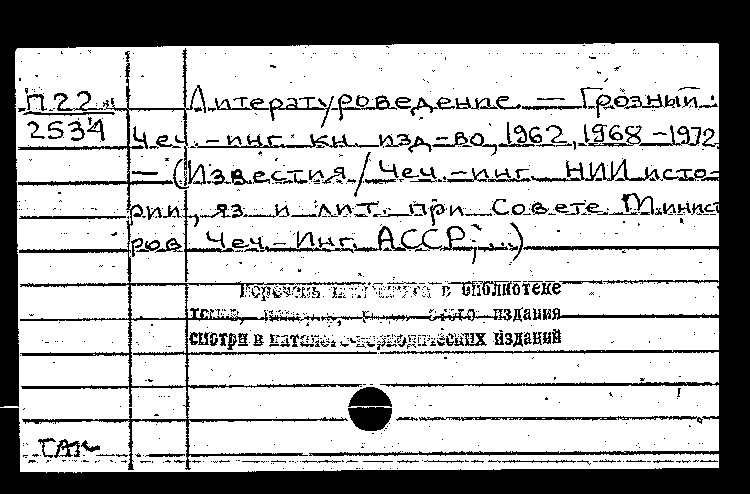 П22
2534
Литературоведение. — Грозный:
Чеч.-инг. кн. изд-во, 1962, 1968-1972
— (Известия / Чеч.-инг. НИИ исто-
рии, яз и лит. при Совете Минист
ров Чеч.-Инг. АССР; ...)
Перечень в библиотеке
этого издания
смотри в каталоге периодических изданий